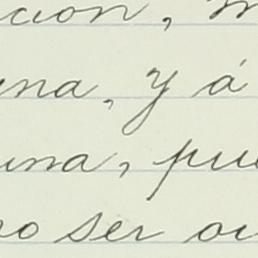 cion, m
una, y á
una, pu
no ser ou